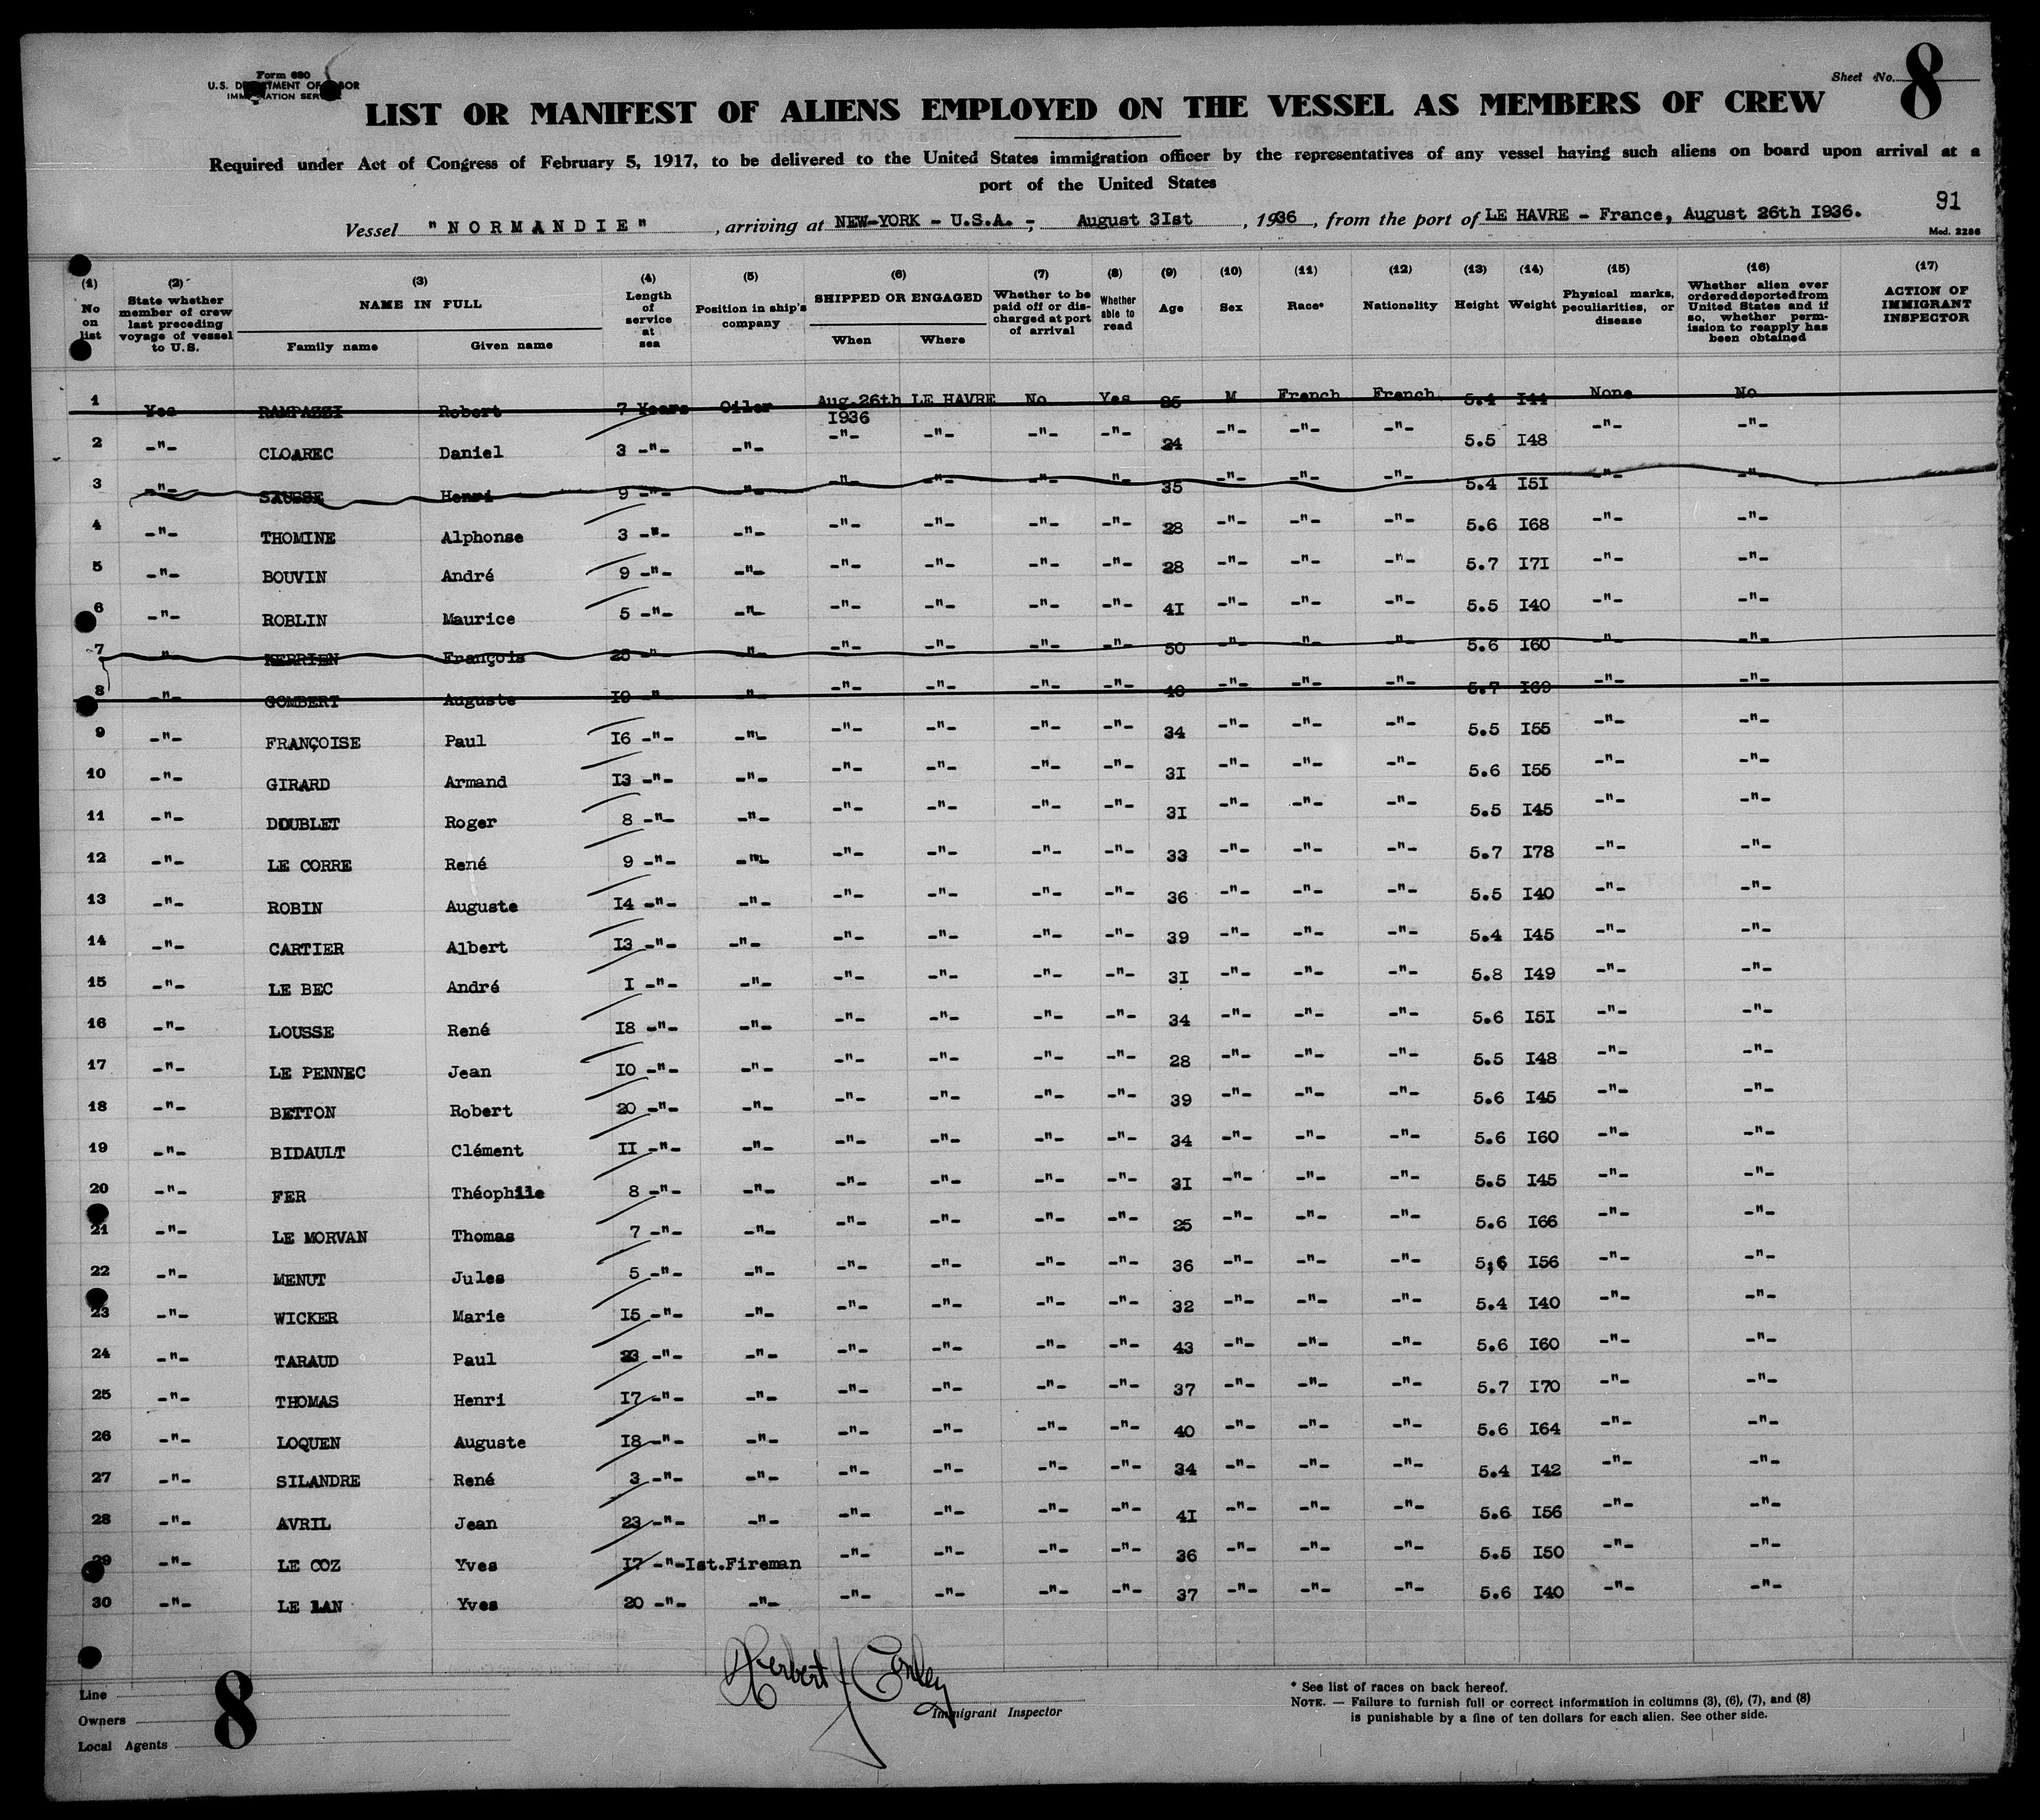 Form 680
U.S. DEPARTMENT OF LABOR
IMMIGRATION SERVICE
Sheet No. 8
LIST OR MANIFEST OF ALIENS EMPLOYED ON THE VESSEL AS MEMBERS OF CREW
Required under Act of Congress of February 5, 1917, to be delivered to the United States immigration officer by the representatives of any vessel having such aliens on board upon arrival at a
port of the United States
91
Vessel "NORMANDIE", arriving at NEW-YORK - U.S.A. -; August 3Ist, 1936, from the port of LE HAVRE - France, August 26th I936.
Mod. 2286
(1) No on list (2) State whether member of crew last preceding voyage of vessel to U.S. (3) NAME IN FULL Family name Given name (4) Length of service at sea (5) Position in ship's company (6) SHIPPED OR ENGAGED When Where (7) Whether to be paid off or discharged at port of arrival (8) Whether able to read (9) Age (10) Sex (11) Race* (12) Nationality (13) Height (14) Weight (15) Physical marks, peculiarities, or disease (16) Whether alien ever ordered deported from United States and if so, whether permission to reapply has been obtained (17) ACTION OF IMMIGRANT INSPECTOR
1 Yes RAMPAZZI Robert 7 Years Oiler Aug.26th I936 LE HAVRE No Yes M French French 5.4 I44 None No
2 -"- CLOAREC Daniel 3 -"- -"- -"- -"- -"- -"- 24 -"- -"- -"- 5.5 I48 -"- -"-
3 -"- SAUSSE Henri 9 -"- -"- -"- -"- -"- -"- 35 -"- -"- -"- 5.4 I5I -"- -"-
4 -"- THOMINE Alphonse 3 -"- -"- -"- -"- -"- -"- 28 -"- -"- -"- 5.6 I68 -"- -"-
5 -"- BOUVIN André 9 -"- -"- -"- -"- -"- -"- 28 -"- -"- -"- 5.7 I7I -"- -"-
6 -"- ROBLIN Maurice 5 -"- -"- -"- -"- -"- -"- 4I -"- -"- -"- 5.5 I40 -"- -"-
7 -"- KERRIEN François 25 -"- -"- -"- -"- -"- -"- 50 -"- -"- -"- 5.6 I60 -"- -"-
8 -"- GOMBERT Auguste I9 -"- -"- -"- -"- -"- -"- 40 -"- -"- -"- 5.7 I69 -"- -"-
9 -"- FRANÇOISE Paul I6 -"- -"- -"- -"- -"- -"- 34 -"- -"- -"- 5.5 I55 -"- -"-
10 -"- GIRARD Armand I3 -"- -"- -"- -"- -"- -"- 3I -"- -"- -"- 5.6 I55 -"- -"-
11 -"- DOUBLET Roger 8 -"- -"- -"- -"- -"- -"- 3I -"- -"- -"- 5.5 I45 -"- -"-
12 -"- LE CORRE René 9 -"- -"- -"- -"- -"- -"- 33 -"- -"- -"- 5.7 I78 -"- -"-
13 -"- ROBIN Auguste I4 -"- -"- -"- -"- -"- -"- 36 -"- -"- -"- 5.5 I40 -"- -"-
14 -"- CARTIER Albert I3 -"- -"- -"- -"- -"- -"- 39 -"- -"- -"- 5.4 I45 -"- -"-
15 -"- LE BEC André I -"- -"- -"- -"- -"- -"- 3I -"- -"- -"- 5.8 I49 -"- -"-
16 -"- LOUSSE René I8 -"- -"- -"- -"- -"- -"- 34 -"- -"- -"- 5.6 I5I -"- -"-
17 -"- LE PENNEC Jean I0 -"- -"- -"- -"- -"- -"- 28 -"- -"- -"- 5.5 I48 -"- -"-
18 -"- BETTON Robert 20 -"- -"- -"- -"- -"- -"- 39 -"- -"- -"- 5.6 I45 -"- -"-
19 -"- BIDAULT Clément II -"- -"- -"- -"- -"- -"- 34 -"- -"- -"- 5.6 I60 -"- -"-
20 -"- FER Théophile 8 -"- -"- -"- -"- -"- -"- 3I -"- -"- -"- 5.5 I45 -"- -"-
21 -"- LE MORVAN Thomas 7 -"- -"- -"- -"- -"- -"- 25 -"- -"- -"- 5.6 I66 -"- -"-
22 -"- MENUT Jules 5 -"- -"- -"- -"- -"- -"- 36 -"- -"- -"- 5;6 I56 -"- -"-
23 -"- WICKER Marie I5 -"- -"- -"- -"- -"- -"- 32 -"- -"- -"- 5.4 I40 -"- -"-
24 -"- TARAUD Paul 23 -"- -"- -"- -"- -"- -"- 43 -"- -"- -"- 5.6 I60 -"- -"-
25 -"- THOMAS Henri I7 -"- -"- -"- -"- -"- -"- 37 -"- -"- -"- 5.7 I70 -"- -"-
26 -"- LOQUEN Auguste I8 -"- -"- -"- -"- -"- -"- 40 -"- -"- -"- 5.6 I64 -"- -"-
27 -"- SILANDRE René 3 -"- -"- -"- -"- -"- -"- 34 -"- -"- -"- 5.4 I42 -"- -"-
28 -"- AVRIL Jean 23 -"- -"- -"- -"- -"- -"- 4I -"- -"- -"- 5.6 I56 -"- -"-
29 -"- LE COZ Yves I7 -"- Ist.Fireman -"- -"- -"- -"- 36 -"- -"- -"- 5.5 I50 -"- -"-
30 -"- LE LAN Yves 20 -"- -"- -"- -"- -"- -"- 37 -"- -"- -"- 5.6 I40 -"- -"-
Line
Owners
Local Agents
8
Herbert J Conley
Immigrant Inspector
* See list of races on back hereof.
NOTE. — Failure to furnish full or correct information in columns (3), (6), (7), and (8)
is punishable by a fine of ten dollars for each alien. See other side.